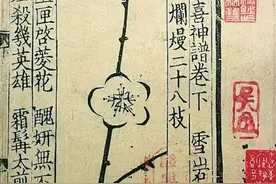 喜神譜卷下 雪岩
爛熳二十八枝
匣啓菱花 醜妍無
殺幾英雄 霜